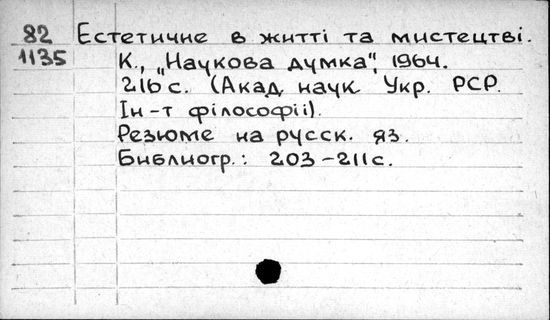 82 Естетичне в житті та мистецтві.
1135 К., „Наукова думка", 1964.
216 с. (Акад. наук Укр. РСР.
Ін-т філософії).
Резюме на русск. яз.
Библиогр.: 203-211с.